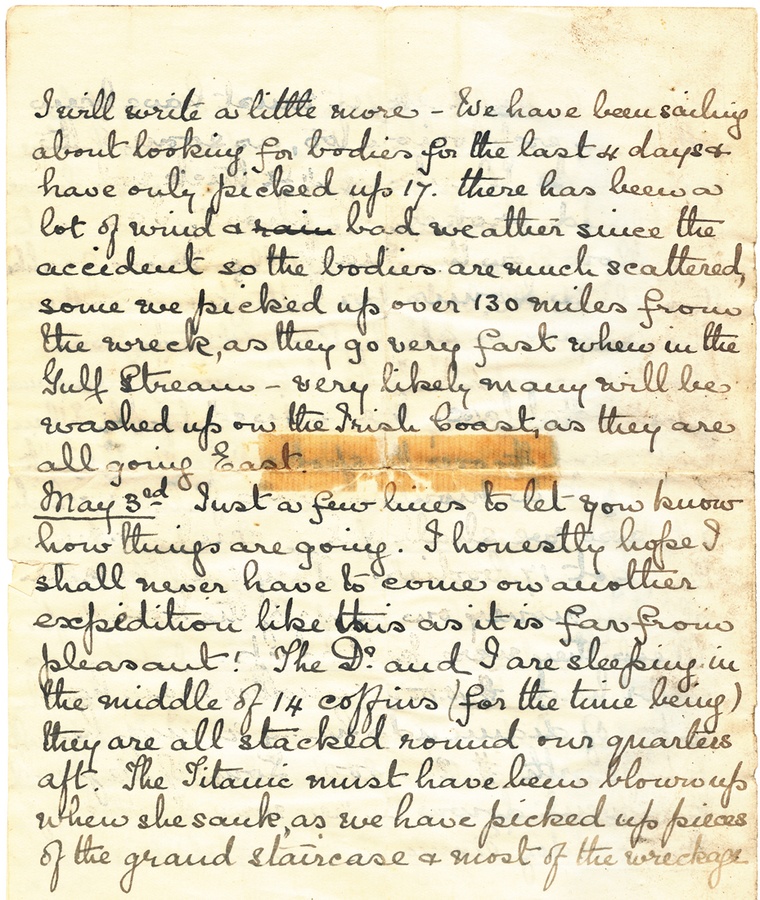 I will write a little more - We have been sailing
about looking for bodies for the last 4 days &
have only picked up 17. there has been a
lot of wind & rain bad weather since the
accident so the bodies are much scattered,
some we picked up over 130 miles from
the wreck, as they go very fast when in the
Gulf Stream - very likely many will be
washed up on the Irish Coast, as they are
all going East.
May 3rd Just a few lines to let you know
how things are going. I honestly hope I
shall never have to come on another
expedition like this as it is far from
pleasant! The Dr. and I are sleeping in
the middle of 14 coffins (for the time being)
they are all stacked round our quarters
aft. The Titanic must have been blown up
when she sank, as we have picked up pieces
of the grand staircase & most of the wreckage